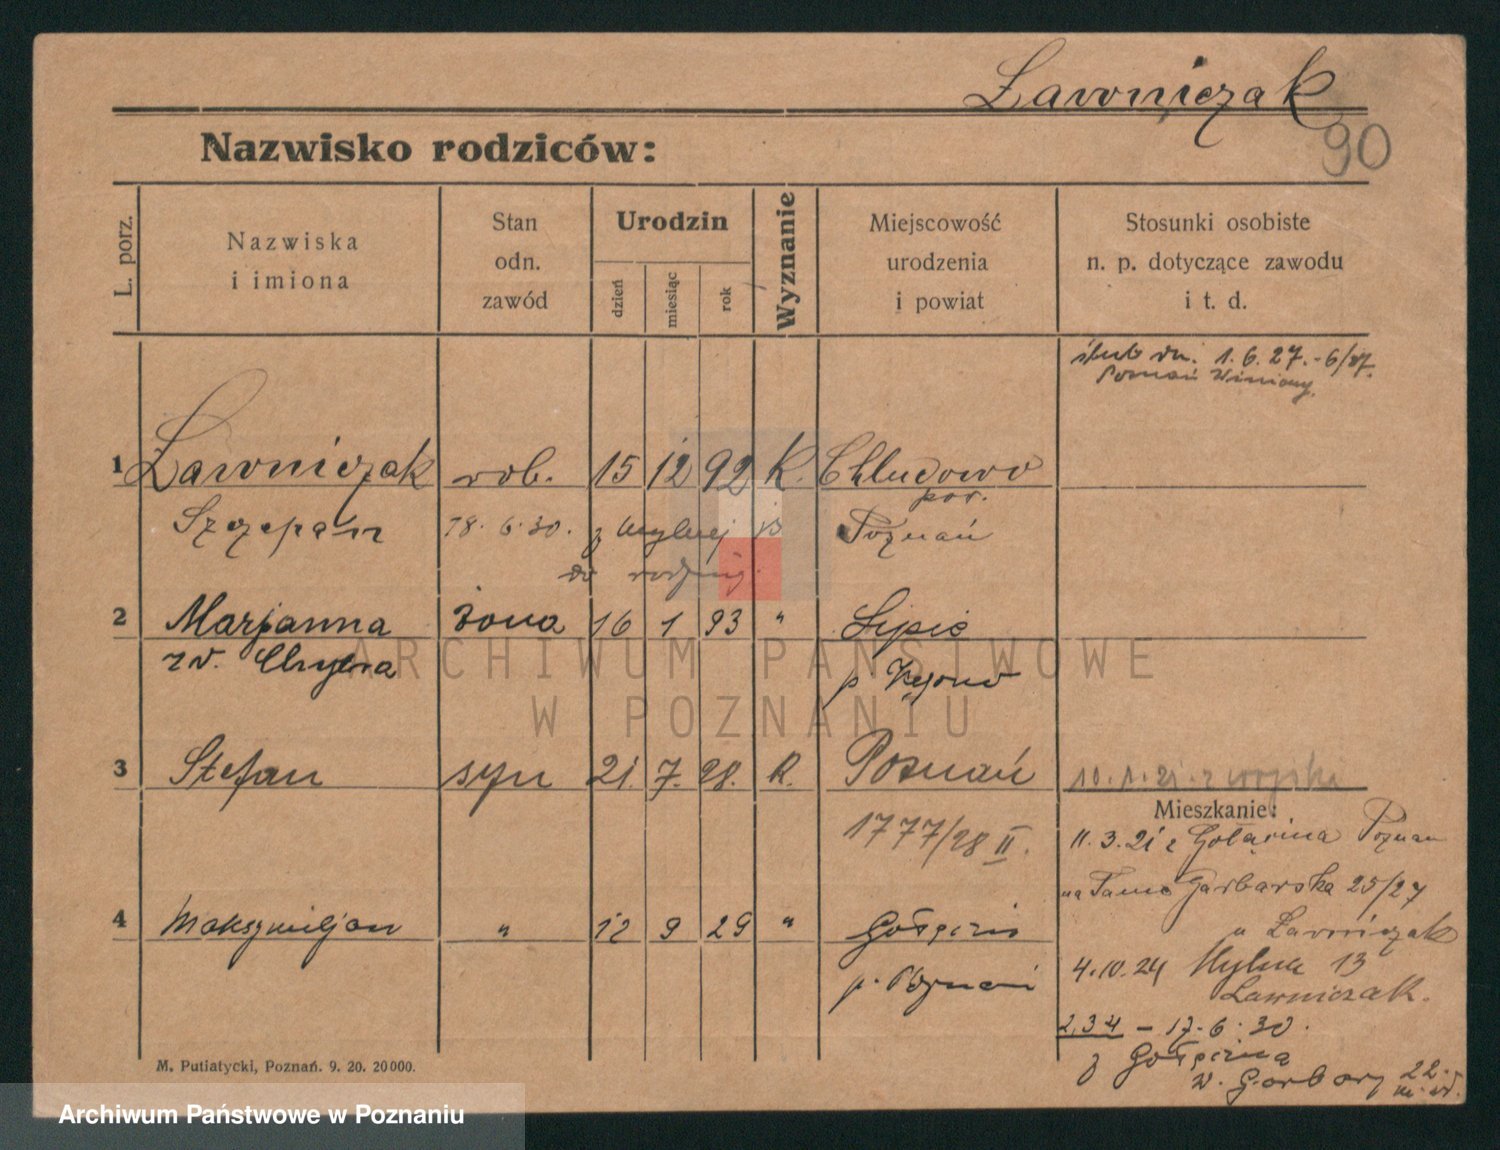 Ławniczak
90
Nazwisko rodziców:
L. porz.
Nazwiska
i imiona
Stan
odn.
zawód
Urodzin
dzień
miesiąc
rok
Wyznanie
Miejscowość
urodzenia
i powiat
Stosunki osobiste
n. p. dotyczące zawodu
i t. d.
ślub dn. 1.6.27.-6/27.
Poznań Winiary.
1 Ławniczak rob. 15 12 92 K. Chludowo
pow.
Szczepan 18.6.30. z Mylnej 13 Poznań
do rodziny.
2 Marjanna żona 16 1 93 "
ur. Chybra
3 Stefan syn 21. 7. 28. K. Poznań 10.1.21. z wojska
1777/28 II.
Mieszkanie:
11.3.21 z Gołęcina Poznan
na Tama Garbarska 25/27
u Ławniczak
4 Maksymiljan " 12 9 29 " Gołęcin
p. Poznań
4.10.24 Mylna 13
Ławniczak.
2,3,4 - 17.6.30.
z Gołęcina
W. Garbary 22.
M. Putiatycki, Poznań. 9. 20. 20000.
ARCHIWUM PAŃSTWOWE
W POZNANIU
Archiwum Państwowe w Poznaniu